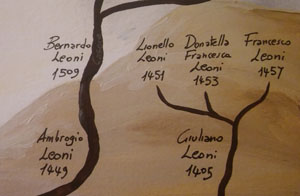 Bernardo
Leoni
1509
Lionello
Leoni
1451
Donatella
Francesca
Leoni
1453
Francesco
Leoni
1457
Ambrogio
Leoni
1449
Giuliano
Leoni
1405